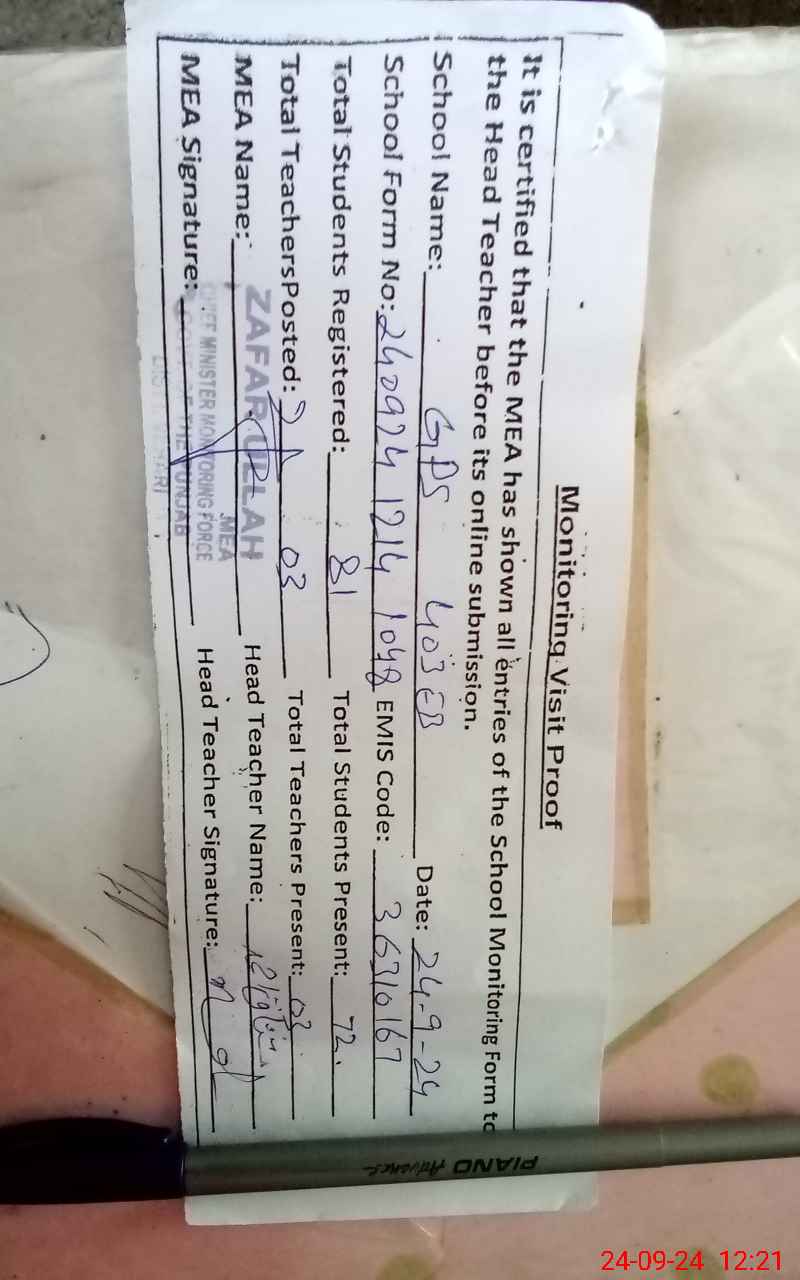 Monitoring Visit Proof
It is certified that the MEA has shown all entries of the School Monitoring Form to
the Head Teacher before its online submission.
School Name: GPS 403 EB Date: 24-9-24
School Form No: 240924 1214 1048 EMIS Code: 36310167
Total Students Registered: 81 Total Students Present: 72
Total Teachers Posted: 03 Total Teachers Present: 03
MEA Name: ZAFAR ULLAH Head Teacher Name:
MEA
CHIEF MINISTER MONITORING FORCE
MEA Signature: Head Teacher Signature:
GOVT OF THE PUNJAB
PIANO
24-09-24 12:21